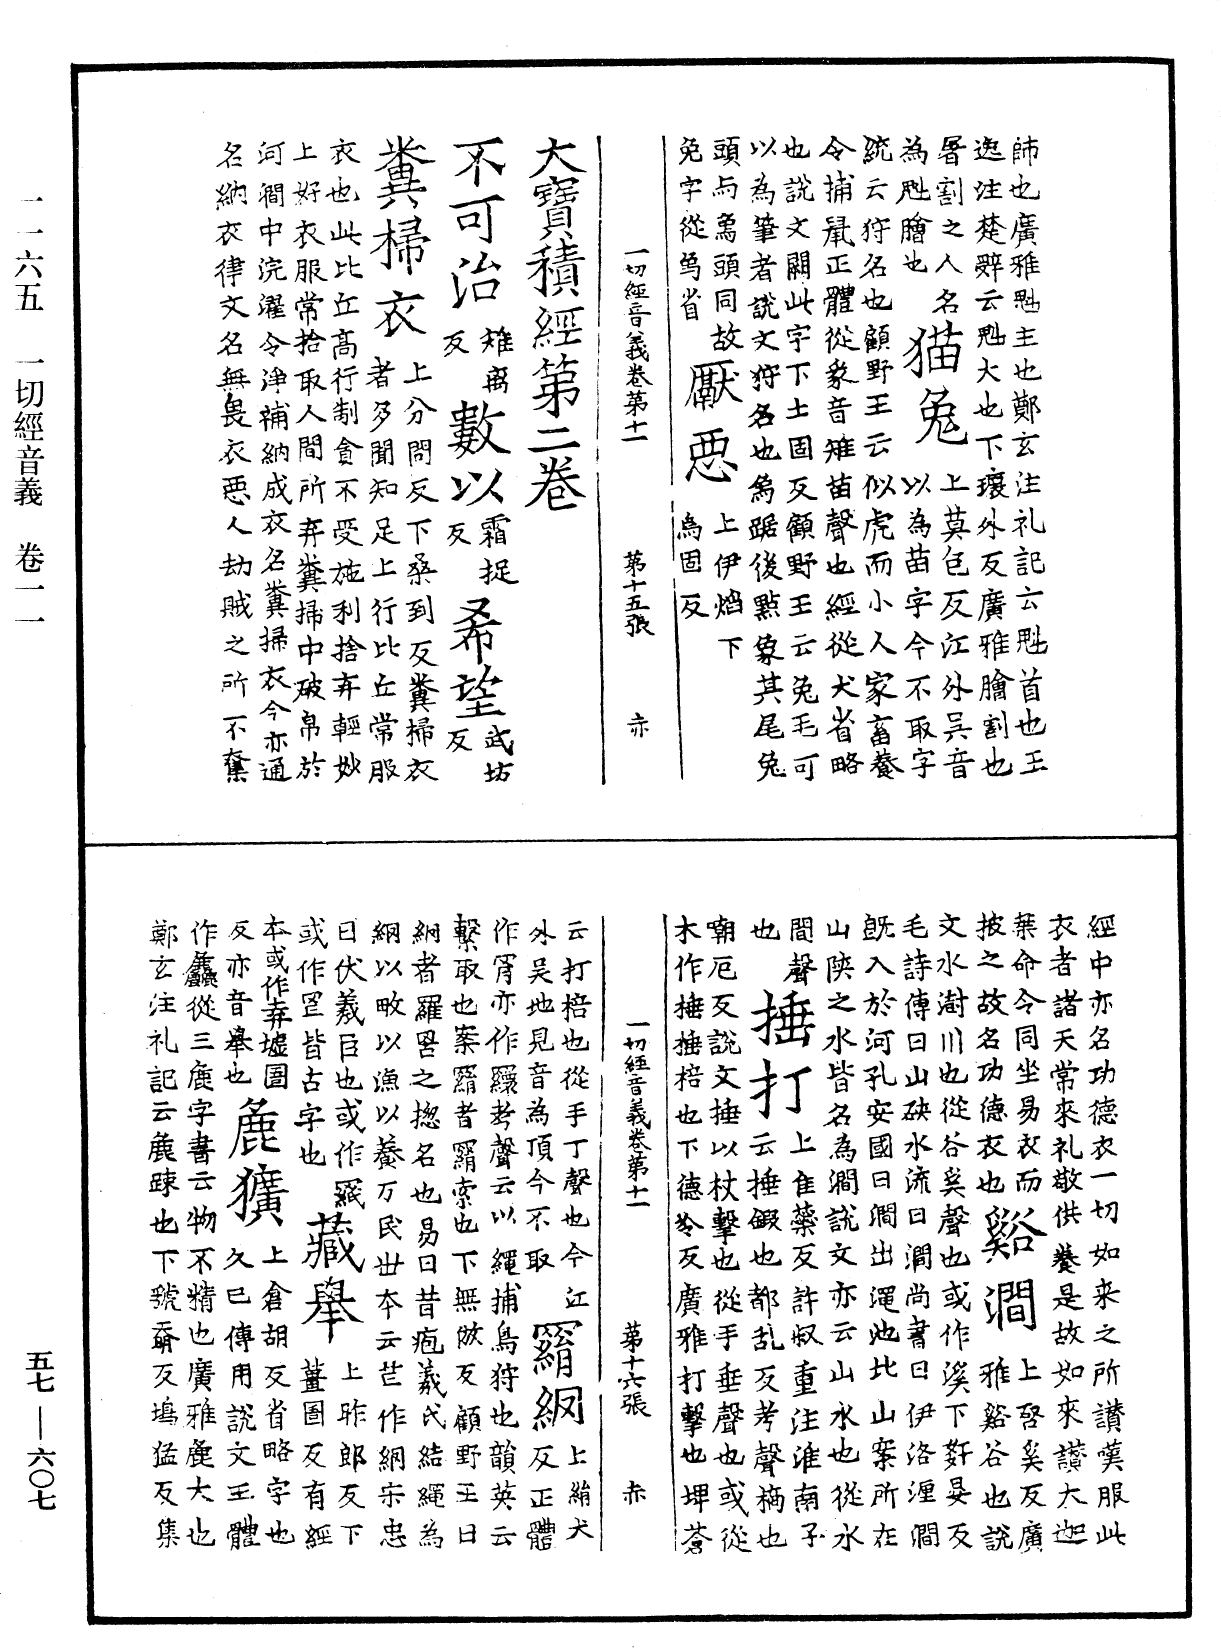 一一六五　一切經音義　卷一一
師也廣雅魁主也鄭玄注礼記云魁首也王
逸注楚辭云魁大也下瓌外反廣雅膾割也
屠割之人名
為魁膾也
猫兔
上莫包反江外吳音
以為苗字今不取字
統云狩名也顧野王云似虎而小人家畜養
令捕鼠正體從豸音雉苗聲也經從犬省略
也說文闕此字下土固反顧野王云兔毛可
以為筆者說文狩名也為踞後點象其尾兔
頭与㲋頭同故
兔字從㲋省
厭惡
上伊焰下
烏固反
一切經音義卷第十一　第十五張　赤
大寶積經第二卷
不可治
雉离
反
數以
霜捉
反
希望
武坊
反
糞掃衣
上分問反下桑到反糞掃衣
者多聞知足上行比丘常服
衣也此比丘高行制貪不受施利捨弃輕妙
上好衣服常拾取人間所弃糞掃中破帛於
河澗中浣濯令淨補納成衣名糞掃衣今亦通
名納衣律文名無畏衣惡人劫賊之所不奪
經中亦名功德衣一切如来之所讃嘆服此
衣者諸天常來礼敬供養是故如來讃大迦
葉命令同坐易衣而
披之故名功德衣也
谿澗
上啓奚反廣
雅谿谷也說
文水澍川也從谷奚聲也或作溪下姧晏反
毛詩傳曰山硤水流曰澗尚書曰伊洛湹澗
既入於河孔安國曰澗出澠池比山案所在
山陝之水皆名為澗說文亦云山水也從水
間聲
也
捶打
上隹蘂反許叔重注淮南子
云捶鍛也都乱反考聲擿也
嘲厄反說文捶以杖擊也從手垂聲也或從
木作捶捶棓也下德冷反廣雅打擊也埤蒼
一切經音義卷第十一　第十六張　赤
云打棓也從手丁聲也今江
外吳地見音為頂今不取
羂網
上絹犬
反正體
作罥亦作䍻考聲云以繩捕鳥狩也韻英云
繫取也案羂者羂索也下無倣反顧野王曰
網者羅罟之揔名也易曰昔疱羲氏結繩為
網以畋以漁以養万民世夲云芒作網宋忠
曰伏羲臣也或作
或作𦉪皆古字也
藏舉
上昨郎反下
薑圄反有經
本或作弆墟圄
反亦音舉也
麁獷
上倉胡反省略字也
久已傳用說文正體
作麤從三鹿字書云物不精也廣雅麁大也
鄭玄注礼記云麁踈也下虢猛反塢猛反集
五七—六〇七